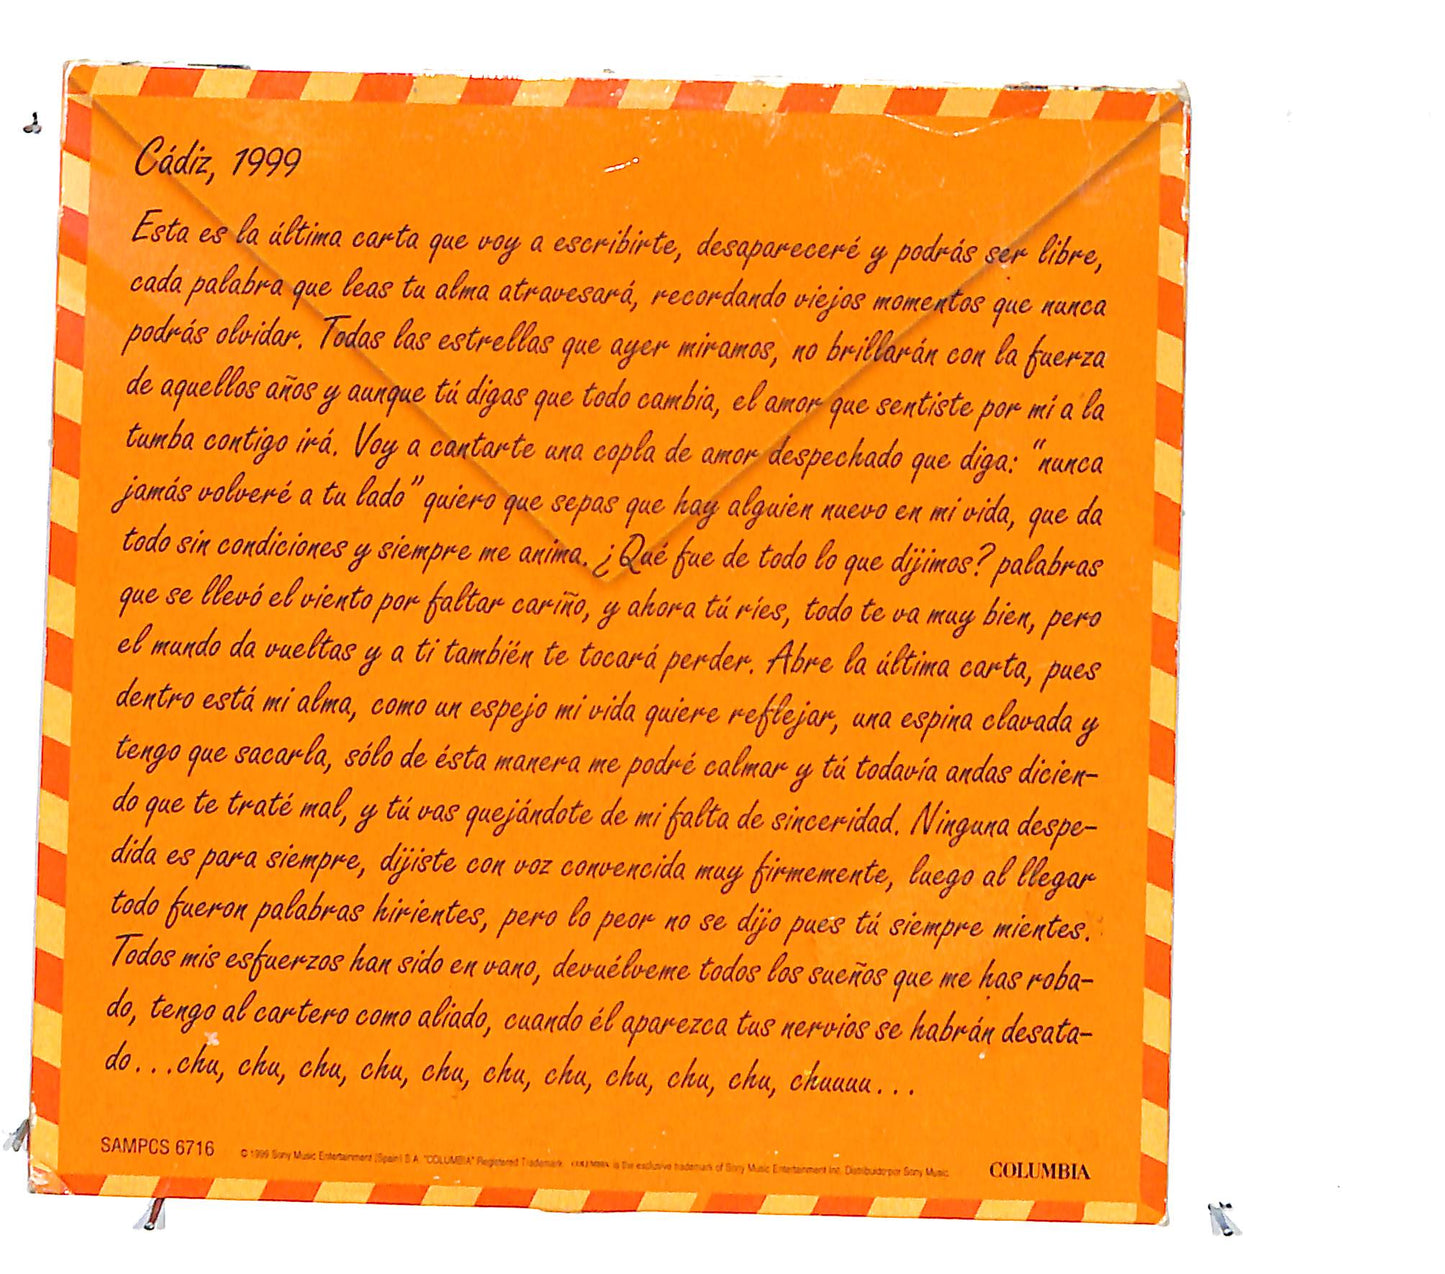 Cádiz, 1999
Esta es la última carta que voy a escribirte, desapareceré y podrás ser libre,
cada palabra que leas tu alma atravesará, recordando viejos momentos que nunca
podrás olvidar. Todas las estrellas que ayer miramos, no brillarán con la fuerza
de aquellos años y aunque tú digas que todo cambia, el amor que sentiste por mí a la
tumba contigo irá. Voy a cantarte una copla de amor despechado que diga: "nunca
jamás volveré a tu lado" quiero que sepas que hay alguien nuevo en mi vida, que da
todo sin condiciones y siempre me anima. ¿Qué fue de todo lo que dijimos? palabras
que se llevó el viento por faltar cariño, y ahora tú ríes, todo te va muy bien, pero
el mundo da vueltas y a ti también te tocará perder. Abre la última carta, pues
dentro está mi alma, como un espejo mi vida quiere reflejar, una espina clavada y
tengo que sacarla, sólo de ésta manera me podré calmar y tú todavía andas dicien-
do que te traté mal, y tú vas quejándote de mi falta de sinceridad. Ninguna despe-
dida es para siempre, dijiste con voz convencida muy firmemente, luego al llegar
todo fueron palabras hirientes, pero lo peor no se dijo pues tú siempre mientes.
Todos mis esfuerzos han sido en vano, devuélveme todos los sueños que me has roba-
do, tengo al cartero como aliado, cuando él aparezca tus nervios se habrán desata-
do...chu, chu, chu, chu, chu, chu, chu, chu, chu, chu, chuuuu...
SAMPCS 6716 © 1999 Sony Music Entertainment (Spain) S.A. "COLUMBIA" Registered Trademark. COLUMBIA is the exclusive trademark of Sony Music Entertainment Inc. Distribuido por Sony Music. COLUMBIA